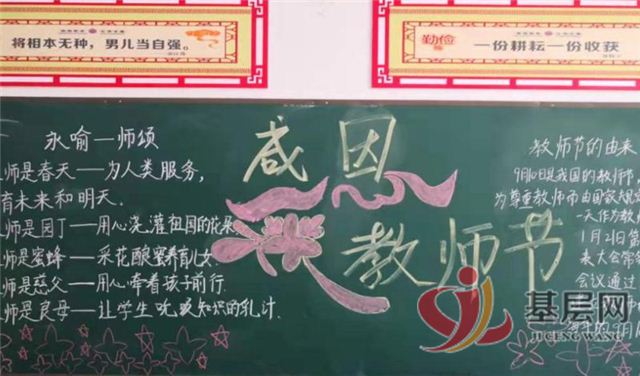 将相本无种，男儿当自强。
勤俭
一份耕耘一份收获
永喻—师颂
师是春天——为人类服务，
有未来和明天.
师是园丁——用心浇灌祖国的花朵
师是蜜蜂——采花酿蜜养育儿女
师是慈父——用心牵着孩子前行.
师是良母——让学生吮吸知识的乳汁.
感恩
教师节
教师节的由来
9月10日是我国的教师节，
为尊重教师而由国家规定
一天作为教
1月21日第
表大会常
会议通过
基层网
JICENG WANG